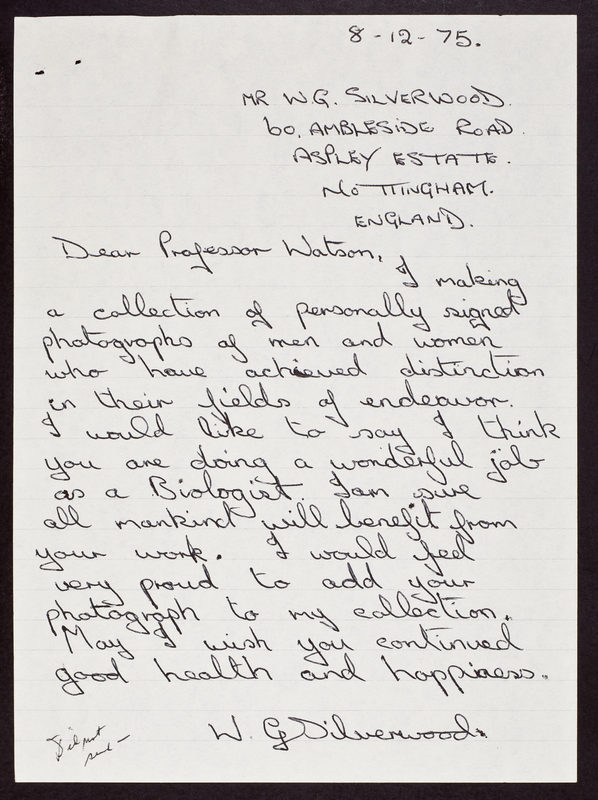 8-12-75.
MR W.G. SILVERWOOD.
60. AMBLESIDE ROAD.
ASPLEY ESTATE.
NOTTINGHAM.
ENGLAND.
Dear Professor Watson,
I making
a collection of personally signed
photographs of men and women
who have achieved distinction
in their fields of endeavor.
I would like to say I think
you are doing a wonderful job
as a Biologist. I am sure
all mankind will benefit from
your work. I would feel
very proud to add your
photograph to my collection.
May I wish you continued
good health and happiness.
W. G Silverwood.